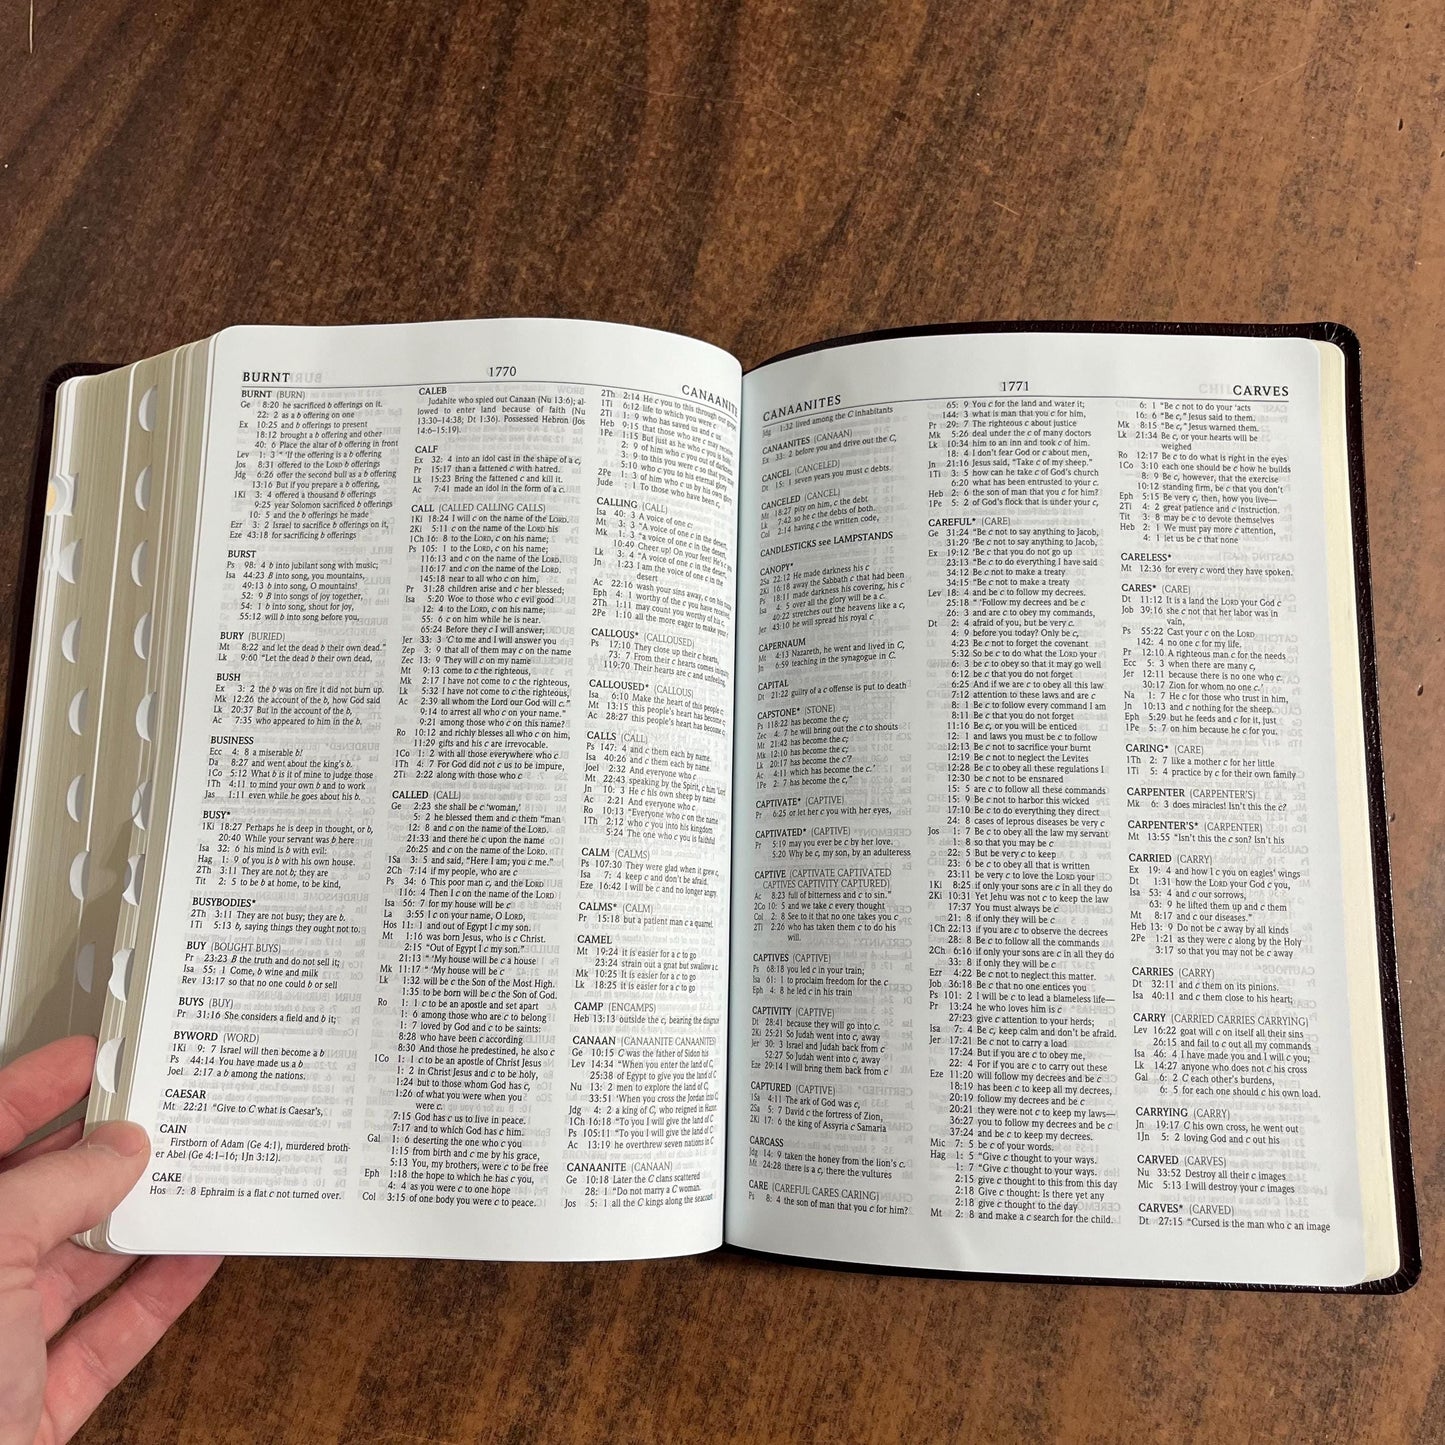 BURNT
1770
CANAANITE
BURNT (BURN)
Ge 8:20 he sacrificed b offerings on it.
22: 2 as a b offering on one
Ex 10:25 and b offerings to present
18:12 brought a b offering and other
40: 6 Place the altar of b offering in front
Lev 1: 3 " 'If the offering is a b offering
Jos 8:31 offered to the LORD b offerings
Jdg 6:26 offer the second bull as a b offering
13:16 But if you prepare a b offering,
1Ki 3: 4 offered a thousand b offerings
9:25 year Solomon sacrificed b offerings
10: 5 and the b offerings he made
Ezr 3: 2 Israel to sacrifice b offerings on it,
Eze 43:18 for sacrificing b offerings
BURST
Ps 98: 4 b into jubilant song with music;
Isa 44:23 B into song, you mountains,
49:13 b into song, O mountains!
52: 9 B into songs of joy together,
54: 1 b into song, shout for joy,
55:12 will b into song before you,
BURY (BURIED)
Mt 8:22 and let the dead b their own dead."
Lk 9:60 "Let the dead b their own dead,
BUSH
Ex 3: 2 the b was on fire it did not burn up.
Mk 12:26 the account of the b, how God said
Lk 20:37 But in the account of the b,
Ac 7:35 who appeared to him in the b.
BUSINESS
Ecc 4: 8 a miserable b!
Da 8:27 and went about the king's b.
1Co 5:12 What b is it of mine to judge those
1Th 4:11 to mind your own b and to work
Jas 1:11 even while he goes about his b.
BUSY*
1Ki 18:27 Perhaps he is deep in thought, or b,
20:40 While your servant was b here
Isa 32: 6 his mind is b with evil:
Hag 1: 9 of you is b with his own house.
2Th 3:11 They are not b; they are
Tit 2: 5 to be b at home, to be kind,
BUSYBODIES*
2Th 3:11 They are not busy; they are b.
1Ti 5:13 b, saying things they ought not to.
BUY (BOUGHT BUYS)
Pr 23:23 B the truth and do not sell it;
Isa 55: 1 Come, b wine and milk
Rev 13:17 so that no one could b or sell
BUYS (BUY)
Pr 31:16 She considers a field and b it;
BYWORD (WORD)
1Ki 9: 7 Israel will then become a b
Ps 44:14 You have made us a b
Joel 2:17 a b among the nations.
CAESAR
Mt 22:21 "Give to C what is Caesar's,
CAIN
Firstborn of Adam (Ge 4:1), murdered broth-
er Abel (Ge 4:1–16; 1Jn 3:12).
CAKE
Hos 7: 8 Ephraim is a flat c not turned over.
CALEB
Judahite who spied out Canaan (Nu 13:6); al-
lowed to enter land because of faith (Nu
13:30–14:38; Dt 1:36). Possessed Hebron (Jos
14:6–15:19).
CALF
Ex 32: 4 into an idol cast in the shape of a c,
Pr 15:17 than a fattened c with hatred.
Lk 15:23 Bring the fattened c and kill it.
Ac 7:41 made an idol in the form of a c.
CALL (CALLED CALLING CALLS)
1Ki 18:24 I will c on the name of the LORD.
2Ki 5:11 c on the name of the LORD his
1Ch 16: 8 to the LORD, c on his name;
Ps 105: 1 to the LORD, c on his name;
116:13 and c on the name of the LORD.
116:17 and c on the name of the LORD.
145:18 near to all who c on him,
Pr 31:28 children arise and c her blessed;
Isa 5:20 Woe to those who c evil good
12: 4 to the LORD, c on his name;
55: 6 c on him while he is near.
65:24 Before they c I will answer;
Jer 33: 3 'C to me and I will answer you
Zep 3: 9 that all of them may c on the name
Zec 13: 9 They will c on my name
Mt 9:13 come to c the righteous,
Mk 2:17 I have not come to c the righteous,
Lk 5:32 I have not come to c the righteous,
Ac 2:39 all whom the Lord our God will c."
9:14 to arrest all who c on your name."
9:21 among those who c on this name?
Ro 10:12 and richly blesses all who c on him,
11:29 gifts and his c are irrevocable.
1Co 1: 2 with all those everywhere who c
1Th 4: 7 For God did not c us to be impure,
2Ti 2:22 along with those who c
CALLED (CALL)
Ge 2:23 she shall be c 'woman,'
5: 2 he blessed them and c them "man
12: 8 and c on the name of the LORD.
21:33 and there he c upon the name
26:25 and c on the name of the LORD.
1Sa 3: 5 and said, "Here I am; you c me."
2Ch 7:14 if my people, who are c
Ps 34: 6 This poor man c, and the LORD
116: 4 Then I c on the name of the LORD
Isa 56: 7 for my house will be c
La 3:55 I c on your name, O LORD,
Hos 11: 1 and out of Egypt I c my son.
Mt 1:16 was born Jesus, who is c Christ.
2:15 "Out of Egypt I c my son."
21:13 " 'My house will be c a house
Mk 11:17 " 'My house will be c
Lk 1:32 will be c the Son of the Most High.
1:35 to be born will be c the Son of God.
Ro 1: 1 c to be an apostle and set apart
1: 6 among those who are c to belong
1: 7 loved by God and c to be saints:
8:28 who have been c according
8:30 And those he predestined, he also c
1Co 1: 1 c to be an apostle of Christ Jesus
1: 2 in Christ Jesus and c to be holy,
1:24 but to those whom God has c,
1:26 of what you were when you
were c.
7:15 God has c us to live in peace.
7:17 and to which God has c him.
Gal 1: 6 deserting the one who c you
1:15 from birth and c me by his grace,
5:13 You, my brothers, were c to be free
Eph 1:18 the hope to which he has c you,
4: 4 as you were c to one hope
Col 3:15 of one body you were c to peace.
2Th 2:14 He c you to this through our gospel
1Ti 6:12 life to which you were c
2Ti 1: 9 who has saved us and c us
Heb 9:15 that those who are c may receive
1Pe 1:15 But just as he who c you is holy,
2: 9 of him who c you out of darkness
3: 9 to this you were c so that you may
5:10 who c you to his eternal glory
2Pe 1: 3 of him who c us by his own glory
Jude : 1 To those who have been c,
CALLING (CALL)
Isa 40: 3 A voice of one c:
Mt 3: 3 "A voice of one c in the desert,
Mk 1: 3 "a voice of one c in the desert,
10:49 Cheer up! On your feet! He's c
Lk 3: 4 "A voice of one c in the desert,
Jn 1:23 I am the voice of one c in the
desert
Ac 22:16 wash your sins away, c on his name
Eph 4: 1 worthy of the c you have received.
2Th 1:11 may count you worthy of his c,
2Pe 1:10 all the more eager to make your c
CALLOUS* (CALLOUSED)
Ps 17:10 They close up their c hearts,
73: 7 From their c hearts comes iniquity
119:70 Their hearts are c and unfeeling,
CALLOUSED* (CALLOUS)
Isa 6:10 Make the heart of this people c;
Mt 13:15 this people's heart has become c;
Ac 28:27 this people's heart has become c;
CALLS (CALL)
Ps 147: 4 and c them each by name.
Isa 40:26 and c them each by name.
Joel 2:32 And everyone who c
Mt 22:43 speaking by the Spirit, c him 'Lord'
Jn 10: 3 He c his own sheep by name
Ac 2:21 And everyone who c
Ro 10:13 "Everyone who c on the name
1Th 2:12 who c you into his kingdom
5:24 The one who c you is faithful
CALM (CALMS)
Ps 107:30 They were glad when it grew c,
Isa 7: 4 keep c and don't be afraid.
Eze 16:42 I will be c and no longer angry.
CALMS* (CALM)
Pr 15:18 but a patient man c a quarrel.
CAMEL
Mt 19:24 it is easier for a c to go
23:24 strain out a gnat but swallow a c.
Mk 10:25 It is easier for a c to go
Lk 18:25 it is easier for a c to go
CAMP (ENCAMPS)
Heb 13:13 outside the c, bearing the disgrace
CANAAN (CANAANITE CANAANITES)
Ge 10:15 C was the father of Sidon his
Lev 14:34 "When you enter the land of C,
25:38 of Egypt to give you the land of C
Nu 13: 2 men to explore the land of C,
33:51 'When you cross the Jordan into C,
Jdg 4: 2 a king of C, who reigned in Hazor.
1Ch 16:18 "To you I will give the land of C
Ps 105:11 "To you I will give the land of C
Ac 13:19 he overthrew seven nations in C
CANAANITE (CANAAN)
Ge 10:18 Later the C clans scattered
28: 1 "Do not marry a C woman.
Jos 5: 1 all the C kings along the seacoast
CANAANITES
1771
CARVES
Jdg 1:32 lived among the C inhabitants
CANAANITES (CANAAN)
Ex 33: 2 before you and drive out the C,
CANCEL (CANCELED)
Dt 15: 1 seven years you must c debts.
CANCELED (CANCEL)
Mt 18:27 pity on him, c the debt
Lk 7:42 so he c the debts of both.
Col 2:14 having c the written code,
CANDLESTICKS see LAMPSTANDS
CANOPY*
2Sa 22:12 He made darkness his c
2Ki 16:18 away the Sabbath c that had been
Ps 18:11 made darkness his covering, his c
Isa 4: 5 over all the glory will be a c.
40:22 stretches out the heavens like a c,
Jer 43:10 he will spread his royal c
CAPERNAUM
Mt 4:13 Nazareth, he went and lived in C,
Jn 6:59 teaching in the synagogue in C.
CAPITAL
Dt 21:22 guilty of a c offense is put to death
CAPSTONE* (STONE)
Ps 118:22 has become the c;
Zec 4: 7 he will bring out the c to shouts
Mt 21:42 has become the c;
Mk 12:10 has become the c;
Lk 20:17 has become the c'?
Ac 4:11 which has become the c.'
1Pe 2: 7 has become the c,"
CAPTIVATE* (CAPTIVE)
Pr 6:25 or let her c you with her eyes,
CAPTIVATED* (CAPTIVE)
Pr 5:19 may you ever be c by her love.
5:20 Why be c, my son, by an adulteress
CAPTIVE (CAPTIVATE CAPTIVATED
CAPTIVES CAPTIVITY CAPTURED)
Ac 8:23 full of bitterness and c to sin."
2Co 10: 5 and we take c every thought
Col 2: 8 See to it that no one takes you c
2Ti 2:26 who has taken them c to do his
will.
CAPTIVES (CAPTIVE)
Ps 68:18 you led c in your train;
Isa 61: 1 to proclaim freedom for the c
Eph 4: 8 he led c in his train
CAPTIVITY (CAPTIVE)
Dt 28:41 because they will go into c.
2Ki 25:21 So Judah went into c, away
Jer 30: 3 Israel and Judah back from c
52:27 So Judah went into c, away
Eze 29:14 I will bring them back from c
CAPTURED (CAPTIVE)
1Sa 4:11 The ark of God was c,
2Sa 5: 7 David c the fortress of Zion,
2Ki 17: 6 the king of Assyria c Samaria
CARCASS
Jdg 14: 9 taken the honey from the lion's c.
Mt 24:28 there is a c, there the vultures
CARE (CAREFUL CARES CARING)
Ps 8: 4 the son of man that you c for him?
65: 9 You c for the land and water it;
144: 3 what is man that you c for him,
Pr 29: 7 The righteous c about justice
Mk 5:26 deal under the c of many doctors
Lk 10:34 him to an inn and took c of him.
18: 4 I don't fear God or c about men,
Jn 21:16 Jesus said, "Take c of my sheep."
1Ti 3: 5 how can he take c of God's church
6:20 what has been entrusted to your c.
Heb 2: 6 the son of man that you c for him?
1Pe 5: 2 of God's flock that is under your c,
CAREFUL* (CARE)
Ge 31:24 "Be c not to say anything to Jacob,
31:29 'Be c not to say anything to Jacob,
Ex 19:12 'Be c that you do not go up
23:13 "Be c to do everything I have said
34:12 Be c not to make a treaty
34:15 "Be c not to make a treaty
Lev 18: 4 and be c to follow my decrees.
25:18 " 'Follow my decrees and be c
26: 3 and are c to obey my commands,
Dt 2: 4 afraid of you, but be very c.
4: 9 before you today? Only be c,
4:23 Be c not to forget the covenant
5:32 So be c to do what the LORD your
6: 3 be c to obey so that it may go well
6:12 be c that you do not forget
6:25 And if we are c to obey all this law
7:12 attention to these laws and are c
8: 1 Be c to follow every command I am
8:11 Be c that you do not forget
11:16 Be c, or you will be enticed
12: 1 and laws you must be c to follow
12:13 Be c not to sacrifice your burnt
12:19 Be c not to neglect the Levites
12:28 Be c to obey all these regulations I
12:30 be c not to be ensnared
15: 5 are c to follow all these commands
15: 9 Be c not to harbor this wicked
17:10 Be c to do everything they direct
24: 8 cases of leprous diseases be very c
Jos 1: 7 Be c to obey all the law my servant
1: 8 so that you may be c
22: 5 But be very c to keep
23: 6 be c to obey all that is written
23:11 be very c to love the LORD your
1Ki 8:25 if only your sons are c in all they do
2Ki 10:31 Yet Jehu was not c to keep the law
17:37 You must always be c
21: 8 if only they will be c
1Ch 22:13 if you are c to observe the decrees
28: 8 Be c to follow all the commands
2Ch 6:16 if only your sons are c in all they do
33: 8 if only they will be c
Ezr 4:22 Be c not to neglect this matter.
Job 36:18 Be c that no one entices you
Ps 101: 2 I will be c to lead a blameless life—
Pr 13:24 he who loves him is c
27:23 give c attention to your herds;
Isa 7: 4 Be c, keep calm and don't be afraid.
Jer 17:21 Be c not to carry a load
17:24 But if you are c to obey me,
22: 4 For if you are c to carry out these
Eze 11:20 will follow my decrees and be c
18:19 has been c to keep all my decrees,
20:19 follow my decrees and be c
20:21 they were not c to keep my laws—
36:27 and be c to keep my laws.
37:24 and be c to keep my decrees.
Mic 7: 5 be c of your words.
Hag 1: 5 "Give c thought to your ways.
1: 7 "Give c thought to your ways.
2:15 give c thought to this from this day
2:18 Give c thought: Is there yet any
2:18 give c thought to the day
Mt 2: 8 and make a c search for the child.
6: 1 "Be c not to do your 'acts
16: 6 "Be c," Jesus said to them.
Mk 8:15 "Be c," Jesus warned them.
Lk 21:34 Be c, or your hearts will be
weighed
Ro 12:17 Be c to do what is right in the eyes
1Co 3:10 each one should be c how he builds
8: 9 Be c, however, that the exercise
10:12 standing firm, be c that you don't
Eph 5:15 Be very c, then, how you live—
2Ti 4: 2 great patience and c instruction.
Tit 3: 8 may be c to devote themselves
Heb 2: 1 We must pay more c attention,
4: 1 let us be c that none
CARELESS*
Mt 12:36 for every c word they have spoken.
CARES* (CARE)
Dt 11:12 It is a land the LORD your God c
Job 39:16 she c not that her labor was in
vain,
Ps 55:22 Cast your c on the LORD
142: 4 no one c for my life.
Pr 12:10 A righteous man c for the needs
Ecc 5: 3 when there are many c,
Jer 12:11 because there is no one who c.
30:17 Zion for whom no one c.'
Na 1: 7 He c for those who trust in him,
Jn 10:13 and c nothing for the sheep.
Eph 5:29 but he feeds and c for it, just
1Pe 5: 7 on him because he c for you.
CARING* (CARE)
1Th 2: 7 like a mother c for her little
1Ti 5: 4 practice by c for their own family
CARPENTER (CARPENTER'S)
Mk 6: 3 does miracles! Isn't this the c?
CARPENTER'S* (CARPENTER)
Mt 13:55 "Isn't this the c son? Isn't his
CARRIED (CARRY)
Ex 19: 4 and how I c you on eagles' wings
Dt 1:31 how the LORD your God c you,
Isa 53: 4 and c our sorrows,
63: 9 he lifted them up and c them
Mt 8:17 and c our diseases."
Heb 13: 9 Do not be c away by all kinds
2Pe 1:21 as they were c along by the Holy
3:17 so that you may not be c away
CARRIES (CARRY)
Dt 32:11 and c them on its pinions.
Isa 40:11 and c them close to his heart;
CARRY (CARRIED CARRIES CARRYING)
Lev 16:22 goat will c on itself all their sins
26:15 and fail to c out all my commands
Isa 46: 4 I have made you and I will c you;
Lk 14:27 anyone who does not c his cross
Gal 6: 2 C each other's burdens,
6: 5 for each one should c his own load.
CARRYING (CARRY)
Jn 19:17 C his own cross, he went out
1Jn 5: 2 loving God and c out his
CARVED (CARVES)
Nu 33:52 Destroy all their c images
Mic 5:13 I will destroy your c images
CARVES* (CARVED)
Dt 27:15 "Cursed is the man who c an image